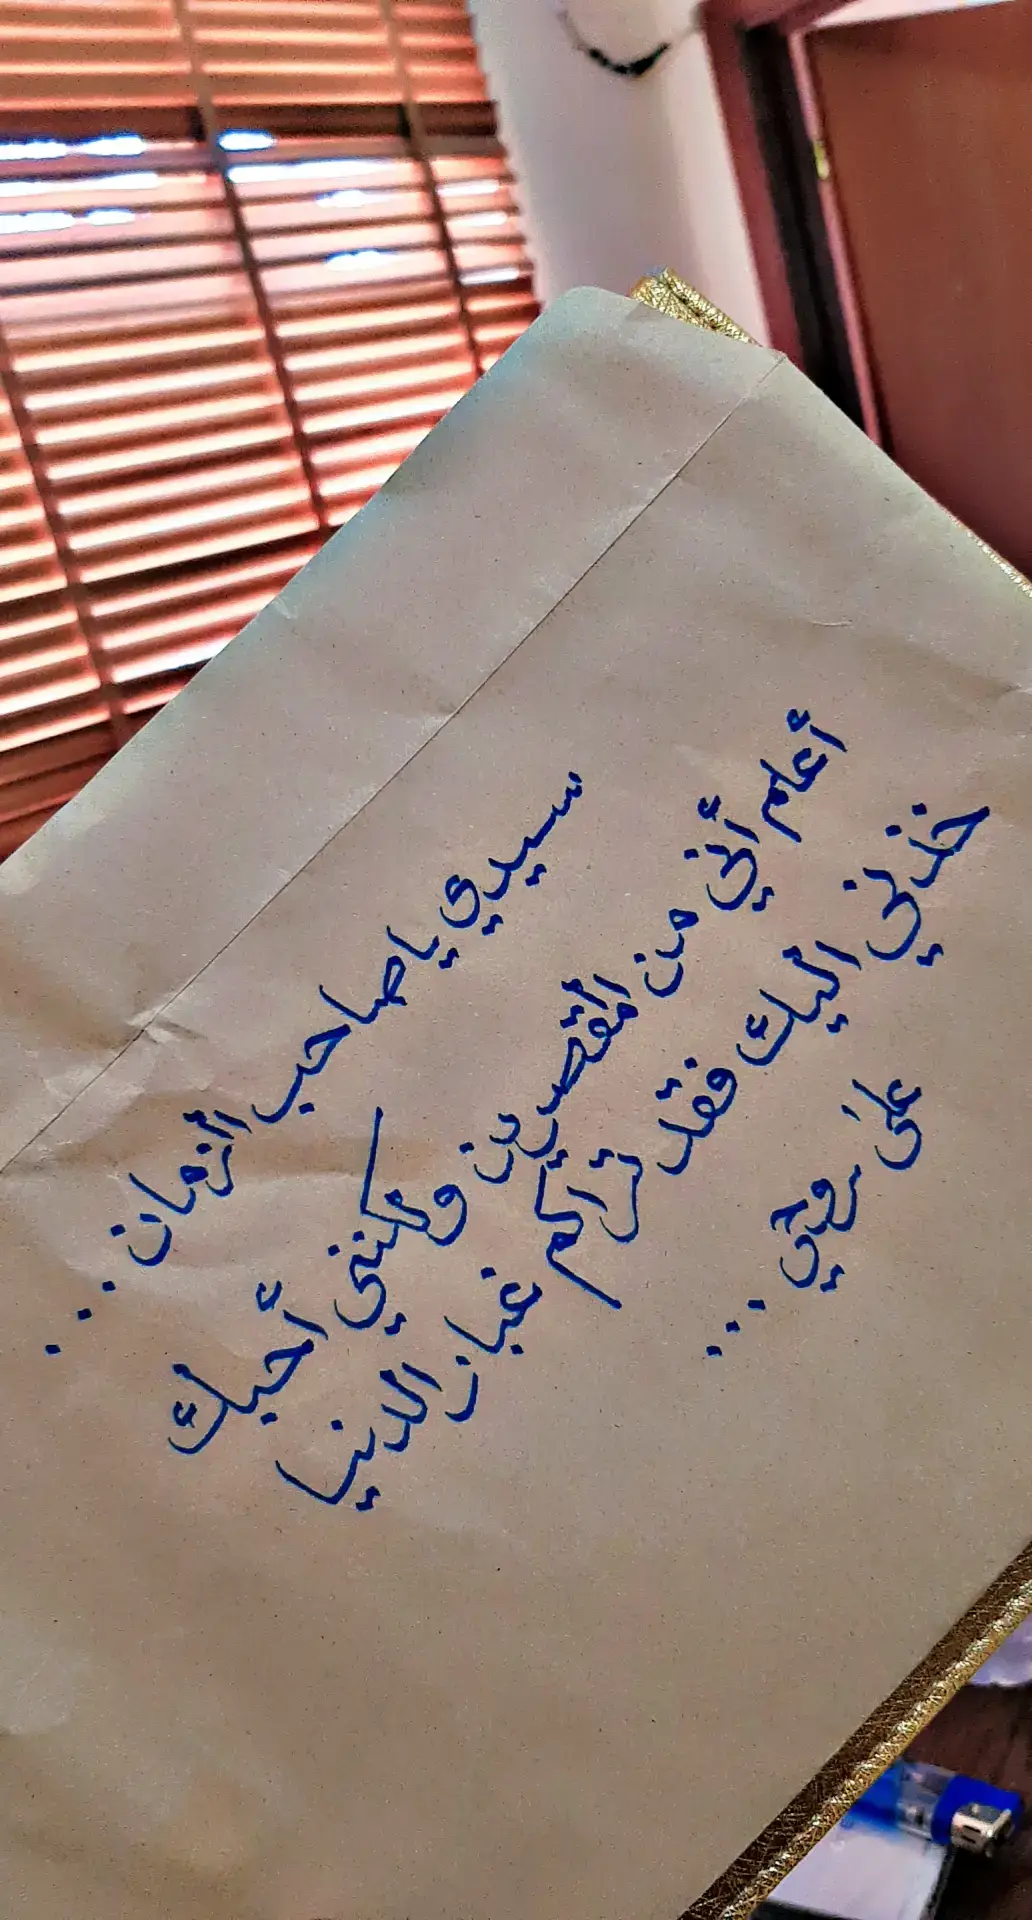 سيدي يا صاحب الزمان ...
أعلم أني من المقصرين ولكنني أحبك
خذني اليك فقد تراكم غبار الدنيا
على روحي ...